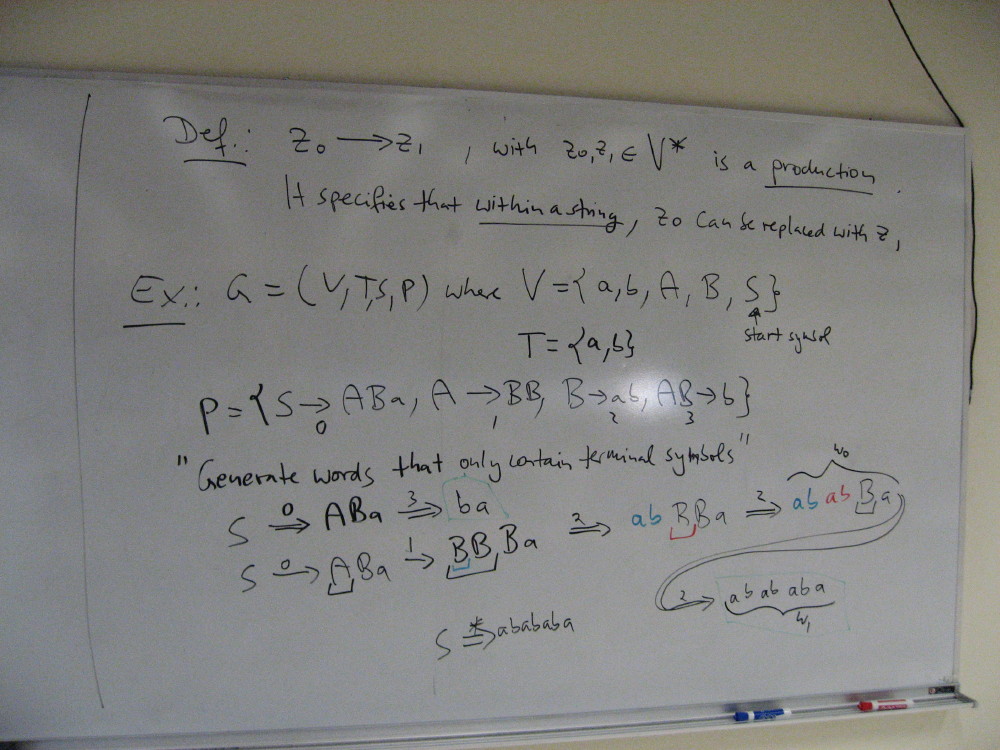 Def.: z₀ → z₁, with z₀,z₁ ∈ V* is a production.
It specifies that within a string, z₀ can be replaced with z₁
Ex.: G = (V,T,S,P) where V={a,b,A,B,S}
start symbol
T={a,b}
P={S→ABa, A→BB, B→ab, AB→b}
0 1 2 3
"Generate words that only contain terminal symbols"
w₀
S ⇒⁰ ABa ⇒³ ba
S →⁰ ABa →¹ BBBa ⇒² abBBa ⇒² ababBa
⇒² abababa
w₁
S ⇒* abababa